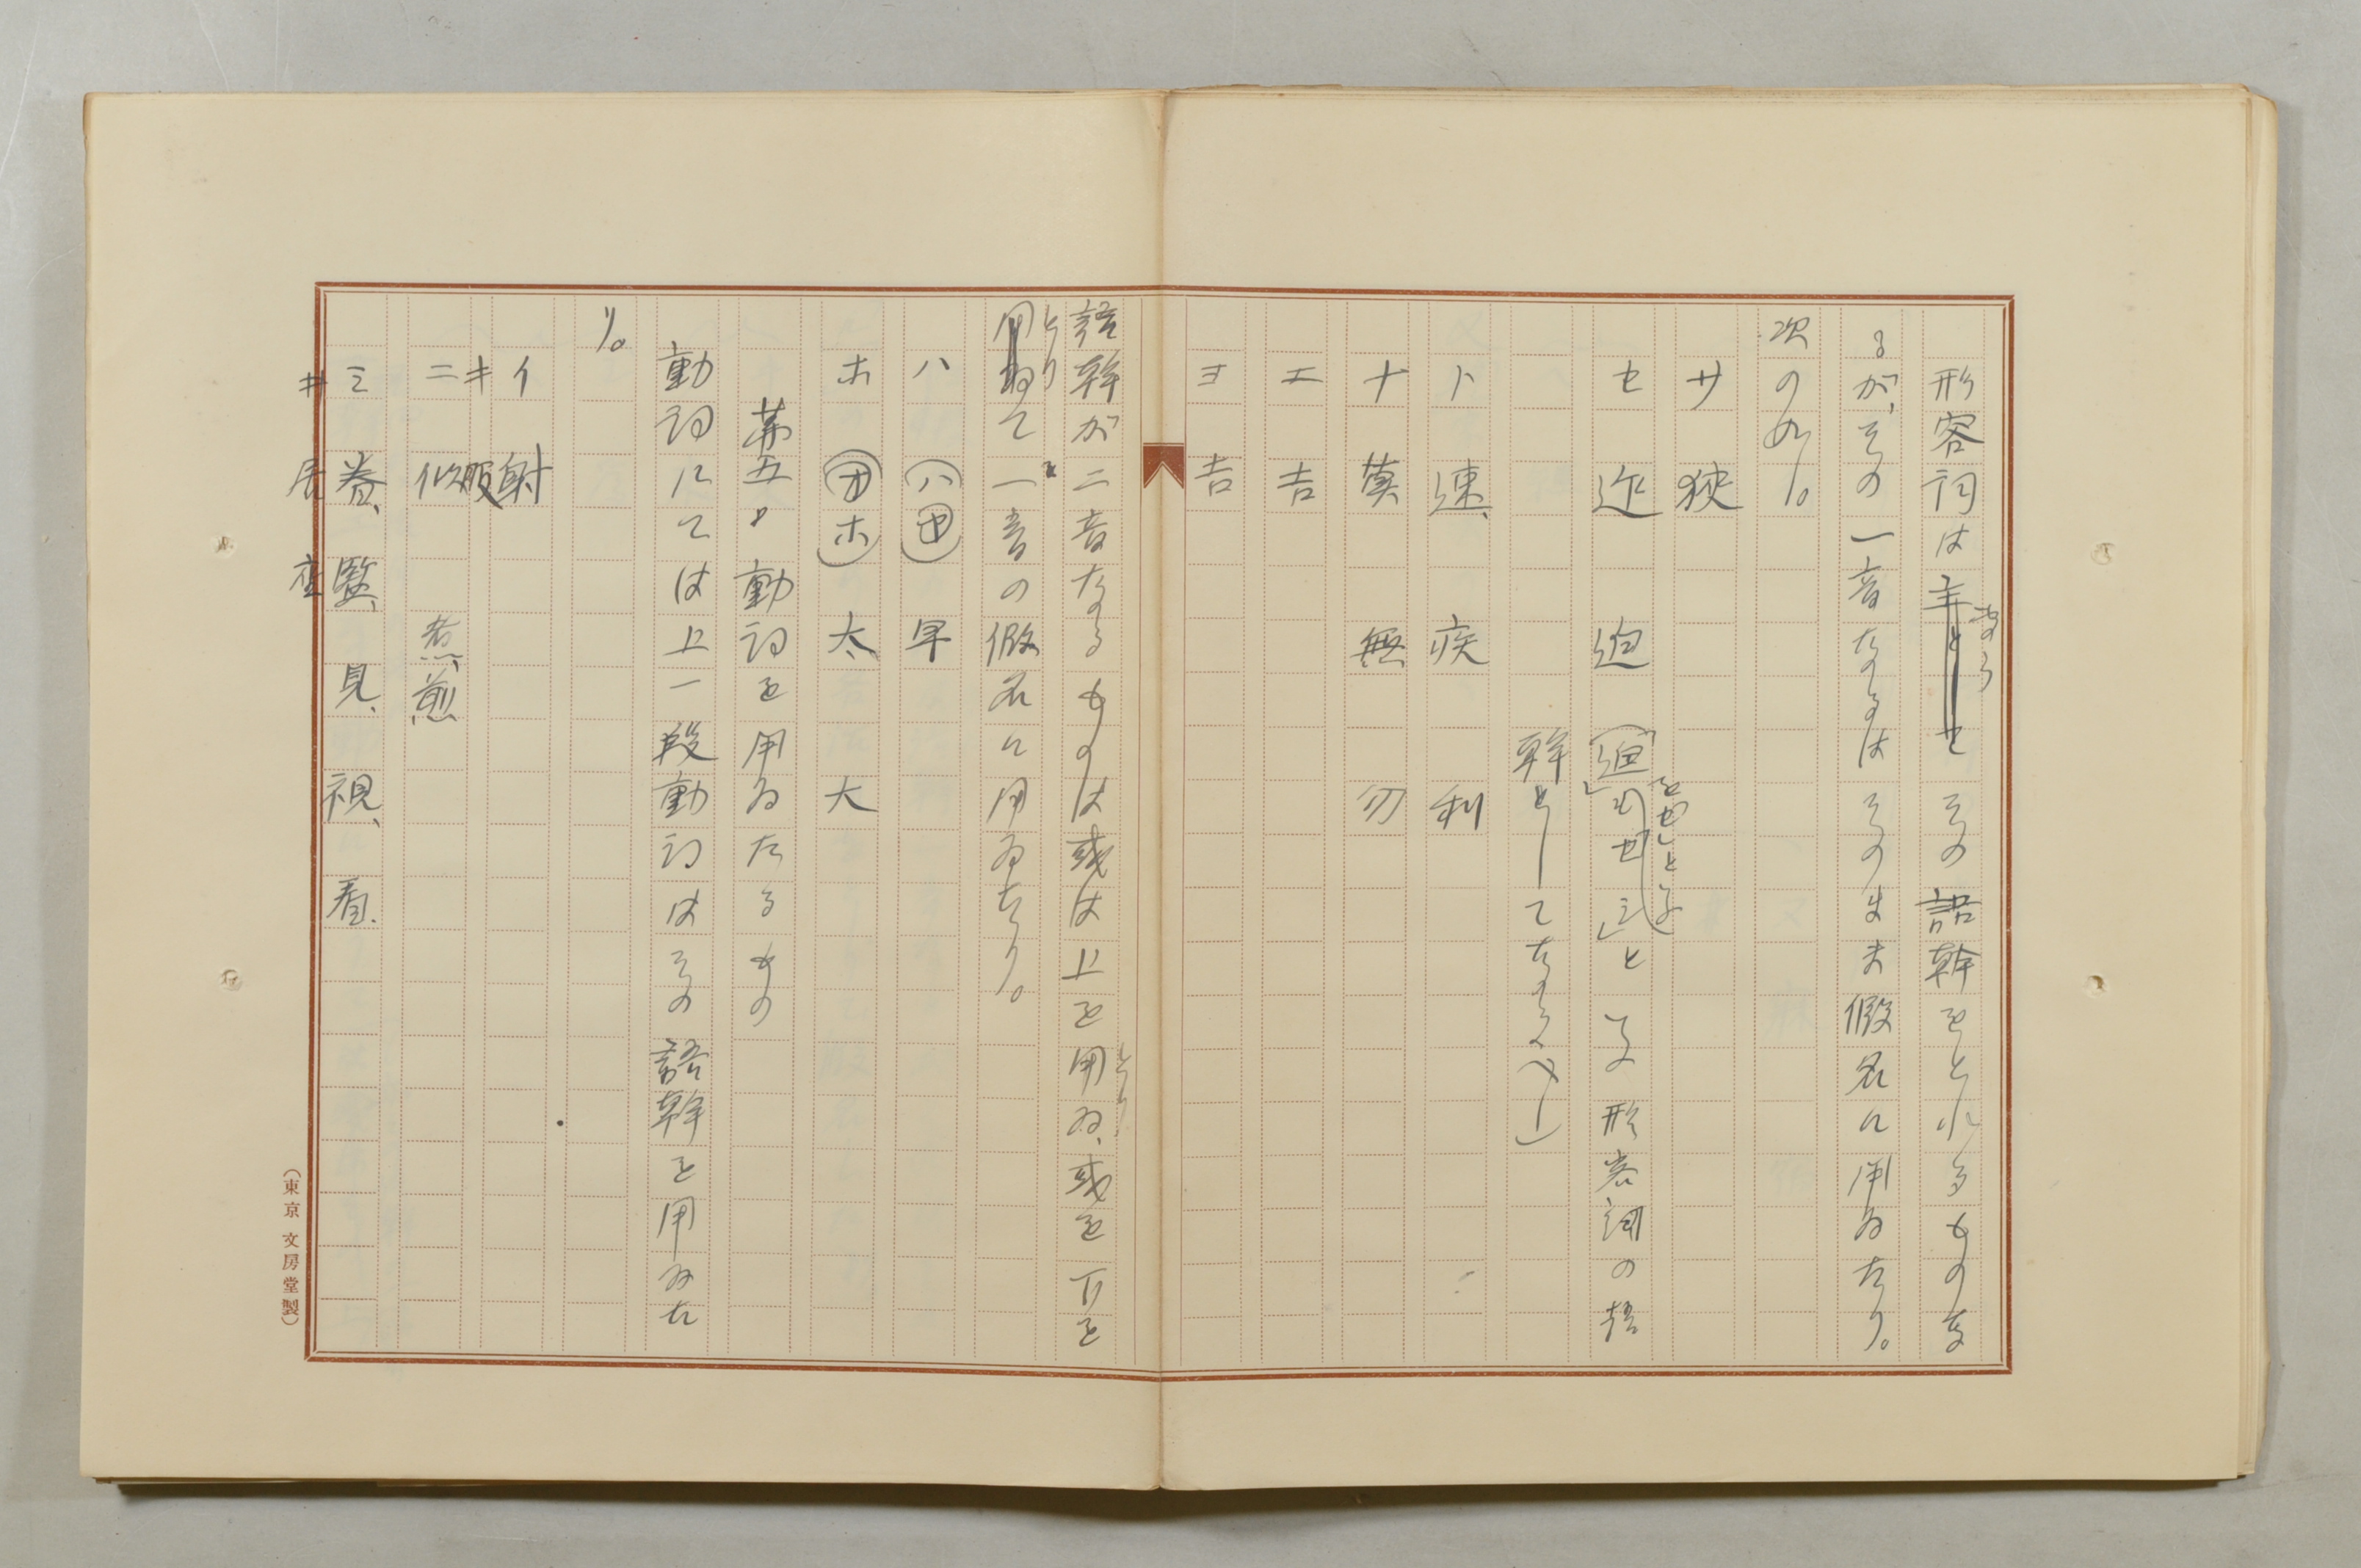 形容詞は主としてその語幹をとれるものな
るが、その一音なるはそのまま假名に用ゐたり。
次の如し。
サ　狹
セ　迫
幹としてたるべし）
ト　速、疾　利
ナ　莫　無　勿
エ　吉
ヨ　吉
語幹が二音なるものは或は上を用ゐ、或は下を
用ゐて一音の假名に用ゐたり。
ハ　（ハヤ）　早
ホ　（オホ）　太　大
第五　動詞を用ゐたるもの
動詞にては上一段動詞はその語幹を用ゐた
り。
イ　射
キ　服
ニ　似　煮、煎
ミ　眷、監、見、視、看
ヰ　居　座
（東京文房堂製）